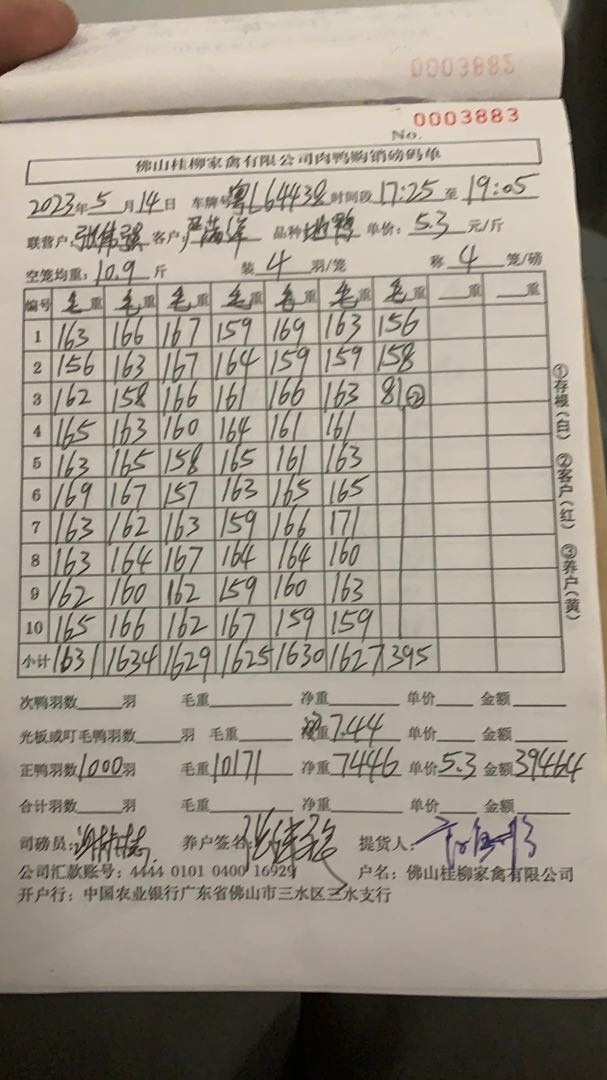 0003882
0003883
No.
佛山桂柳家禽有限公司肉鸭购销磅码单
2023年5月14日 车牌号粤L64438 时间段17:25至19:05
联营户: 张伟强 客户: 品种 单价: 5.3 元/斤
空笼均重: 10.9 斤 装 4 羽/笼 称 4 笼/磅
编号 毛重 毛重 毛重 毛重 毛重 毛重 毛重 重 重
1 163 166 167 159 169 163 156
2 156 163 167 164 159 159 158
3 162 158 166 161 166 163 81 ②
4 165 163 160 164 161 161
5 163 165 158 165 161 163
6 169 167 157 163 165 165
7 163 162 163 159 166 171
8 163 164 167 164 164 160
9 162 160 162 159 160 163
10 165 166 162 167 159 159
小计 1631 1634 1629 1625 1630 1627 395
①存根(白) ②客户(红) ③养户(黄)
次鸭羽数 羽 毛重 净重 单价 金额
光板或叮毛鸭羽数 羽 毛重 重7.44 单价 金额
正鸭羽数1000羽 毛重10171 净重7446 单价5.3 金额39464
合计羽数 羽 毛重 净重 单价 金额
司磅员: 养户签名: 提货人:
公司汇款账号: 4444 0101 0400 16929 户名: 佛山桂柳家禽有限公司
开户行: 中国农业银行广东省佛山市三水区三水支行